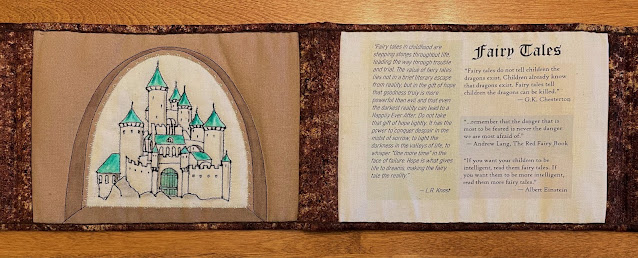 "Fairy tales in childhood are
stepping stones throughout life,
leading the way through trouble
and trial. The value of fairy tales
lies not in a brief literary escape
from reality, but in the gift of hope
that goodness truly is more
powerful than evil and that even
the darkest reality can lead to a
Happily Ever After. Do not take
that gift of hope lightly. It has the
power to conquer despair in the
midst of sorrow, to light the
darkness in the valleys of life, to
whisper "One more time" in the
face of failure. Hope is what gives
life to dreams, making the fairy
tale the reality."
— L.R. Knost
Fairy Tales
"Fairy tales do not tell children the
dragons exist. Children already know
that dragons exist. Fairy tales tell
children the dragons can be killed."
— G.K. Chesterton
"...remember that the danger that is
most to be feared is never the danger
we are most afraid of."
— Andrew Lang, The Red Fairy Book
"If you want your children to be
intelligent, read them fairy tales. If
you want them to be more intelligent,
read them more fairy tales."
— Albert Einstein